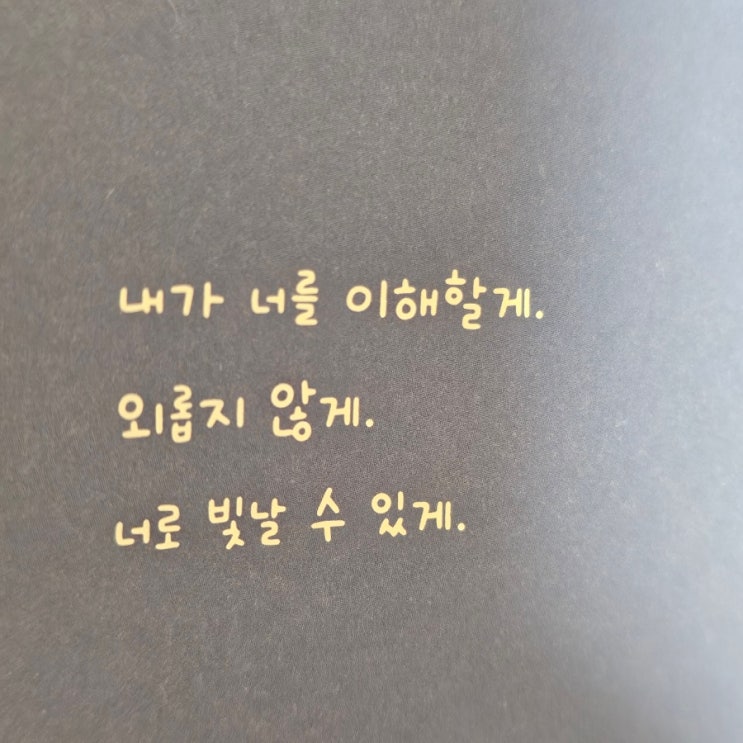 내가 너를 이해할게.
외롭지 않게.
너로 빛날 수 있게.